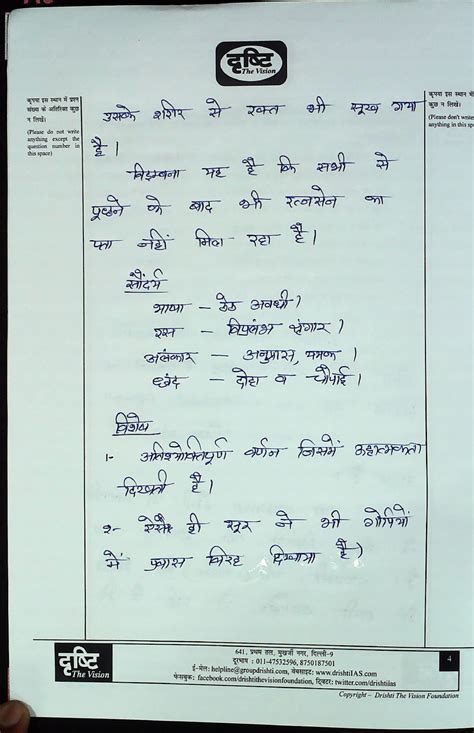 दृष्टि
The Vision
कृपया इस स्थान में प्रश्न
संख्या के अतिरिक्त कुछ
न लिखें।
(Please do not write
anything except the
question number in
this space)
कृपया इस स्थान में
कुछ न लिखें।
(Please don't write
anything in this sp
उसके शरीर से रक्त भी सूख गया
है।
विडम्बना यह है कि सभी से
पूछने के बाद भी रत्नसेन का
पता नहीं मिल रहा है।
सौंदर्य
भाषा – ठेठ अवधी।
रस – विप्रलंभ श्रृंगार।
अलंकार – अनुप्रास, यमक।
छंद – दोहा व चौपाई।
विशेष
1- अतिश्योक्तिपूर्ण वर्णन जिसमें ऊहात्मकता
दिखती है।
२- ऐसे ही सूर ने भी गोपियों
में प्रवास विरह दिखाया है।
दृष्टि
The Vision
641, प्रथम तल, मुखर्जी नगर, दिल्ली-9
दूरभाष : 011-47532596, 8750187501
ई-मेल: helpline@groupdrishti.com, वेबसाइट: www.drishtiIAS.com
फेसबुक: facebook.com/drishtithevisionfoundation, ट्विटर: twitter.com/drishtiias
4
Copyright – Drishti The Vision Foundation